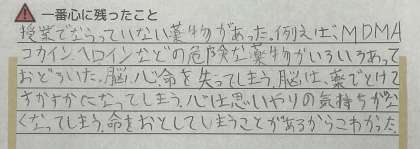 一番心に残ったこと
授業でならっていない薬物があった。例えば、MDMA
コカイン、ヘロインなどの危険な薬物がいろいろあって
おどろいた。脳、心、命を失ってしまう。脳は、薬でとけて
すかすかになってしまう。心は思いやりの気持ちがな
くなってしまう。命をおとしてしまうことがあるからこわかった。